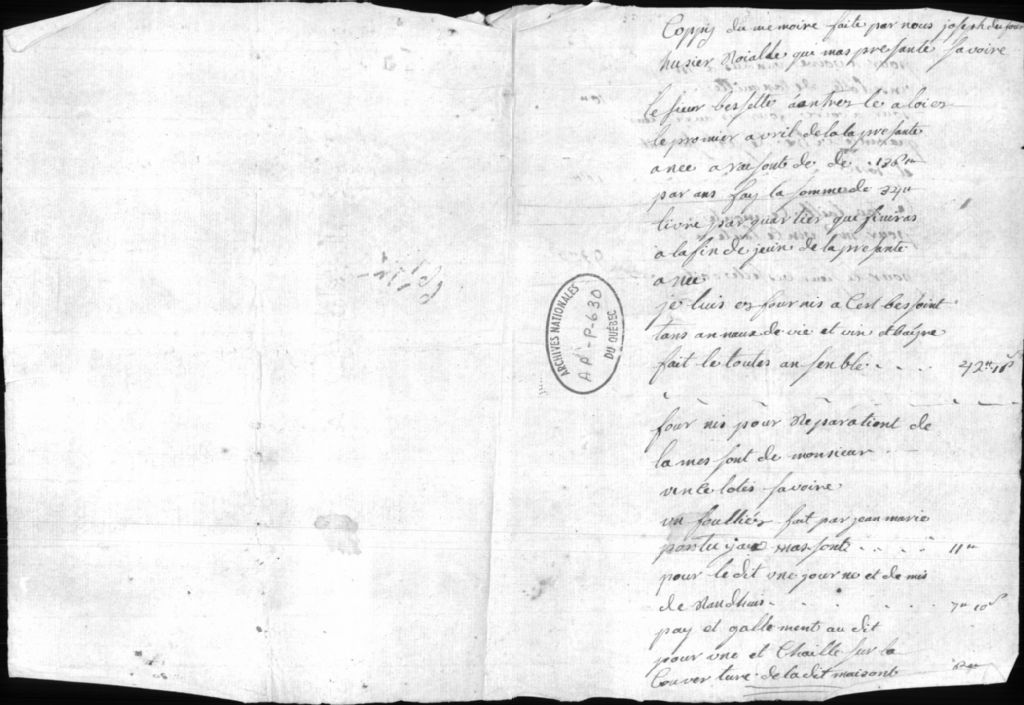 Coppij du memoire faite par nous joseph dufour
husier Roialle que mas presante savoire
le sieur bessette a antres le aloier
le promier avril de la la presante
anee a raisont de de 136#
par ans fay la somme de 34#
livre par quartier que finiras
a la fin de jeun de la presante
anee
je luis es fournis a Cest bessoint
tans an naux de vie et vin
fait le toutes ansenble . . . . 42# 16s
four nis pour Reparationt de
la mes sont de monsieur
vincelotes savoire
un foulliés fait par jean marie
massont . . . . 11#
pour le dit une journe et de mis
de . . . . . 7# 10s
pay et gallement au dit
pour une et Chaille sur la
Couverture de la dit maisont
ARCHIVES NATIONALES
AP-P-630
DU QUÉBEC